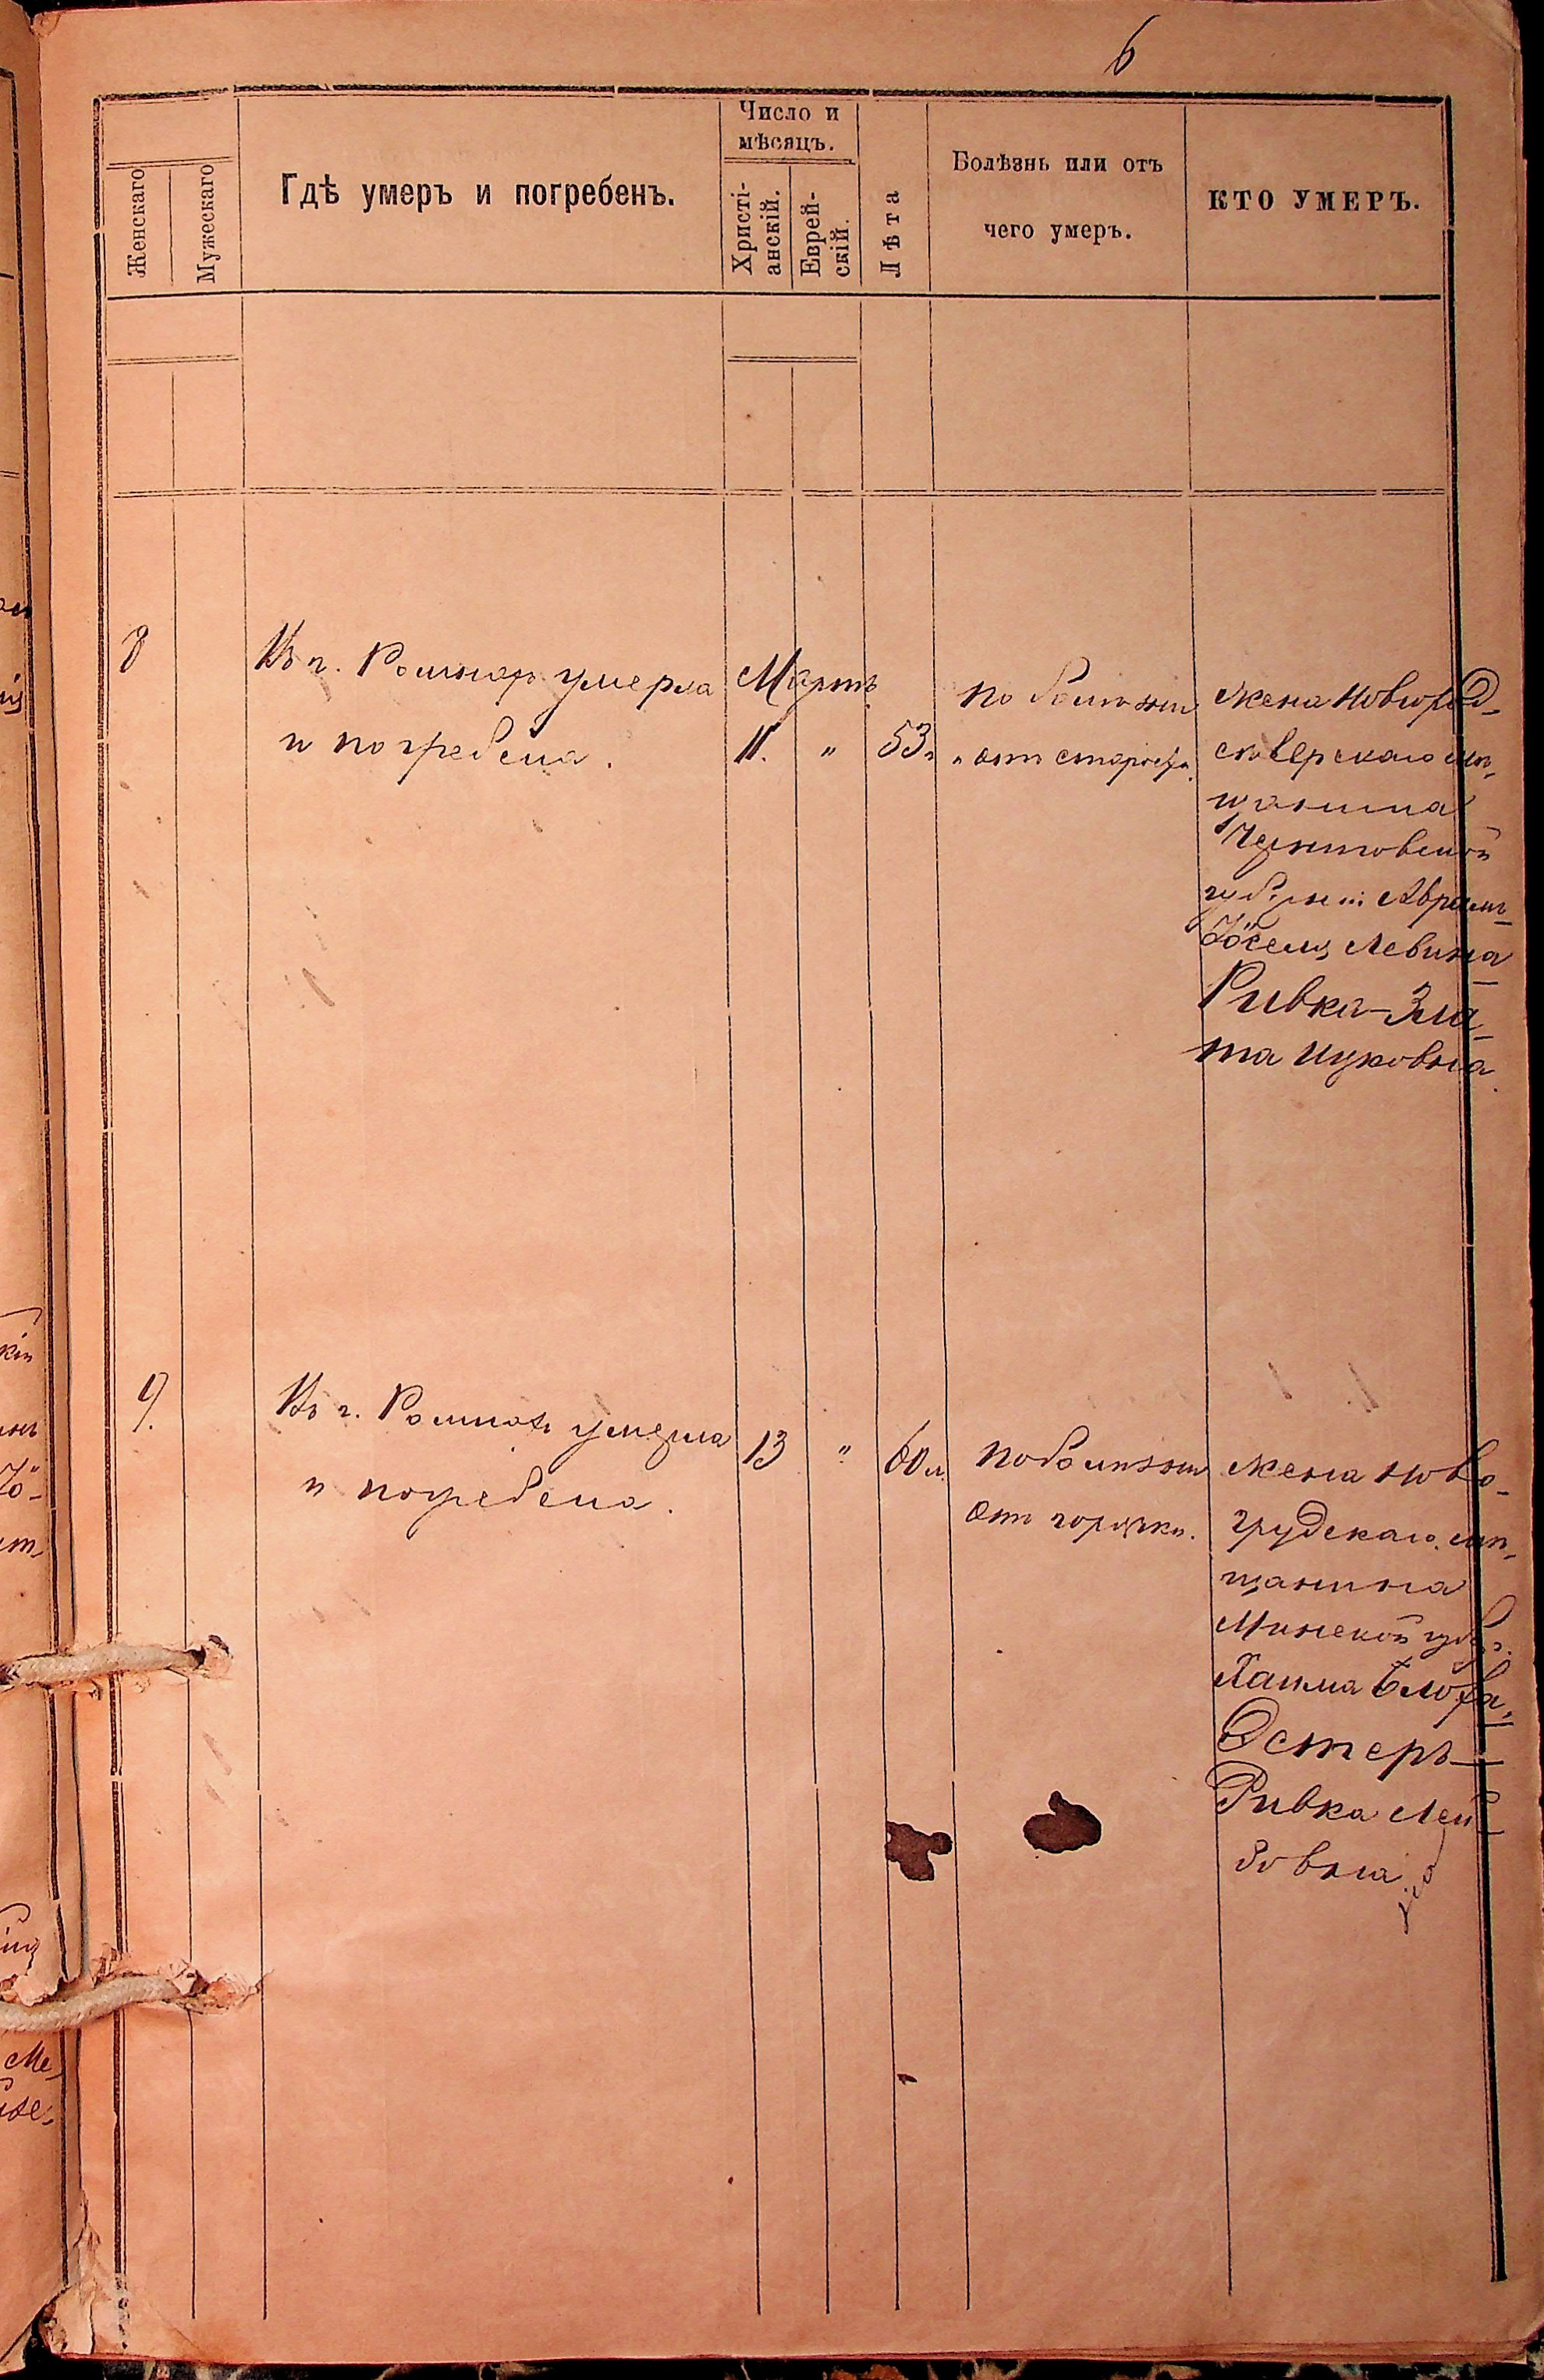 6
Женскаго
Мужескаго
Гдѣ умеръ и погребенъ.
Число и
мѣсяцъ.
Христі-
анскій.
Еврей-
скій.
Лѣта
Болѣзнь или отъ
чего умеръ.
КТО УМЕРЪ.
8
Въ г. Ромнахъ умерла
и погребена.
Мартъ
11.
"
53
по болѣзни
отъ старости.
жена Новгород-
сѣверскаго мѣ-
щанина
Черниговской
губерніи Абрамъ-
Іосель Левина
Ривка-Зла-
та Ицковна
9.
Въ г. Ромнахъ умерла
и погребена.
13
"
60 л.
по болѣзни
отъ горячки.
жена Ново-
грудскаго мѣ-
щанина
Минской губер.
Хаима
Эстеръ-
Ривка Лей-
бовна